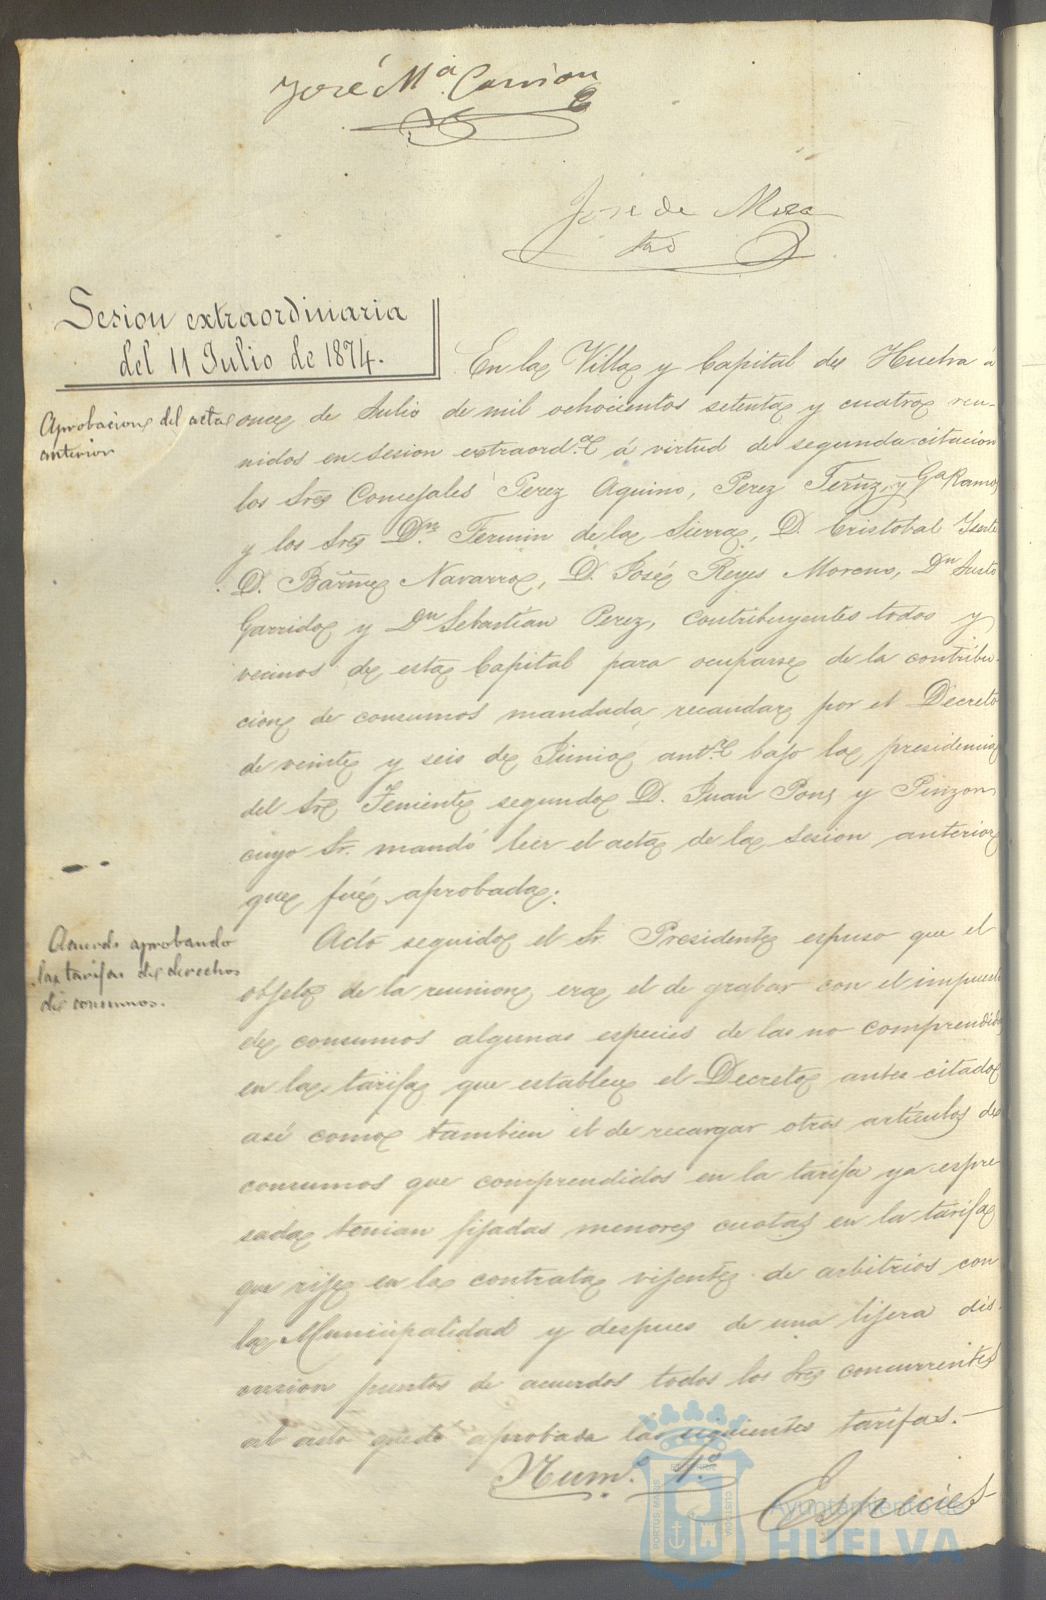 José Mª Carrion
José de Mora
Srio
Sesion extraordinaria
del 11 Julio de 1874.
Aprobacion del acta
anterior
En la Villa y Capital de Huelva á
once de Julio de mil ochocientos setenta y cuatro reu-
nidos en sesion extraord.ª á virtud de segunda citacion
los Sres Concejales Perez Aquino, Perez Fernz, y Gª Ramos
y los Sres Dn Fermin de la Sierra, D. Cristobal
D. Barme Navarro, D. José Reyes Moreno, Dn Justo
Garrido y Dn Sebastian Perez, contribuyentes todos y
vecinos de esta Capital para ocuparse de la contribu-
cion de consumos mandada recaudar por el Decreto
de veinte y seis de Junio ant.r bajo la presidencia
del Sr Teniente segundo D. Juan Pons y Pinzon
cuyo Sr. mandó leer el acta de la sesion anterior
que fué aprobada.
Acuerdo aprobando
las tarifas de derechos
de consumos.
Acto seguido el Sr Presidente espuso que el
objeto de la reunion era el de grabar con el impuesto
de consumos algunas especies de las no comprendidas
en la tarifa que establece el Decreto antes citado
asi como tambien el de recargar otros artículos de
consumos que comprendidos en la tarifa ya espre
sada tenian fijadas menores cuotas en la tarifa
que rije en la contrata vijente de arbitrios con
la Municipalidad y despues de una lijera dis-
cusion puestos de acuerdo todos los Sres concurrentes
al acto quedó aprobada las siguientes tarifas.—
Num.º 1º
Especies
PORTUS MARIS
CUSTODIA
Ayuntamiento de
HUELVA